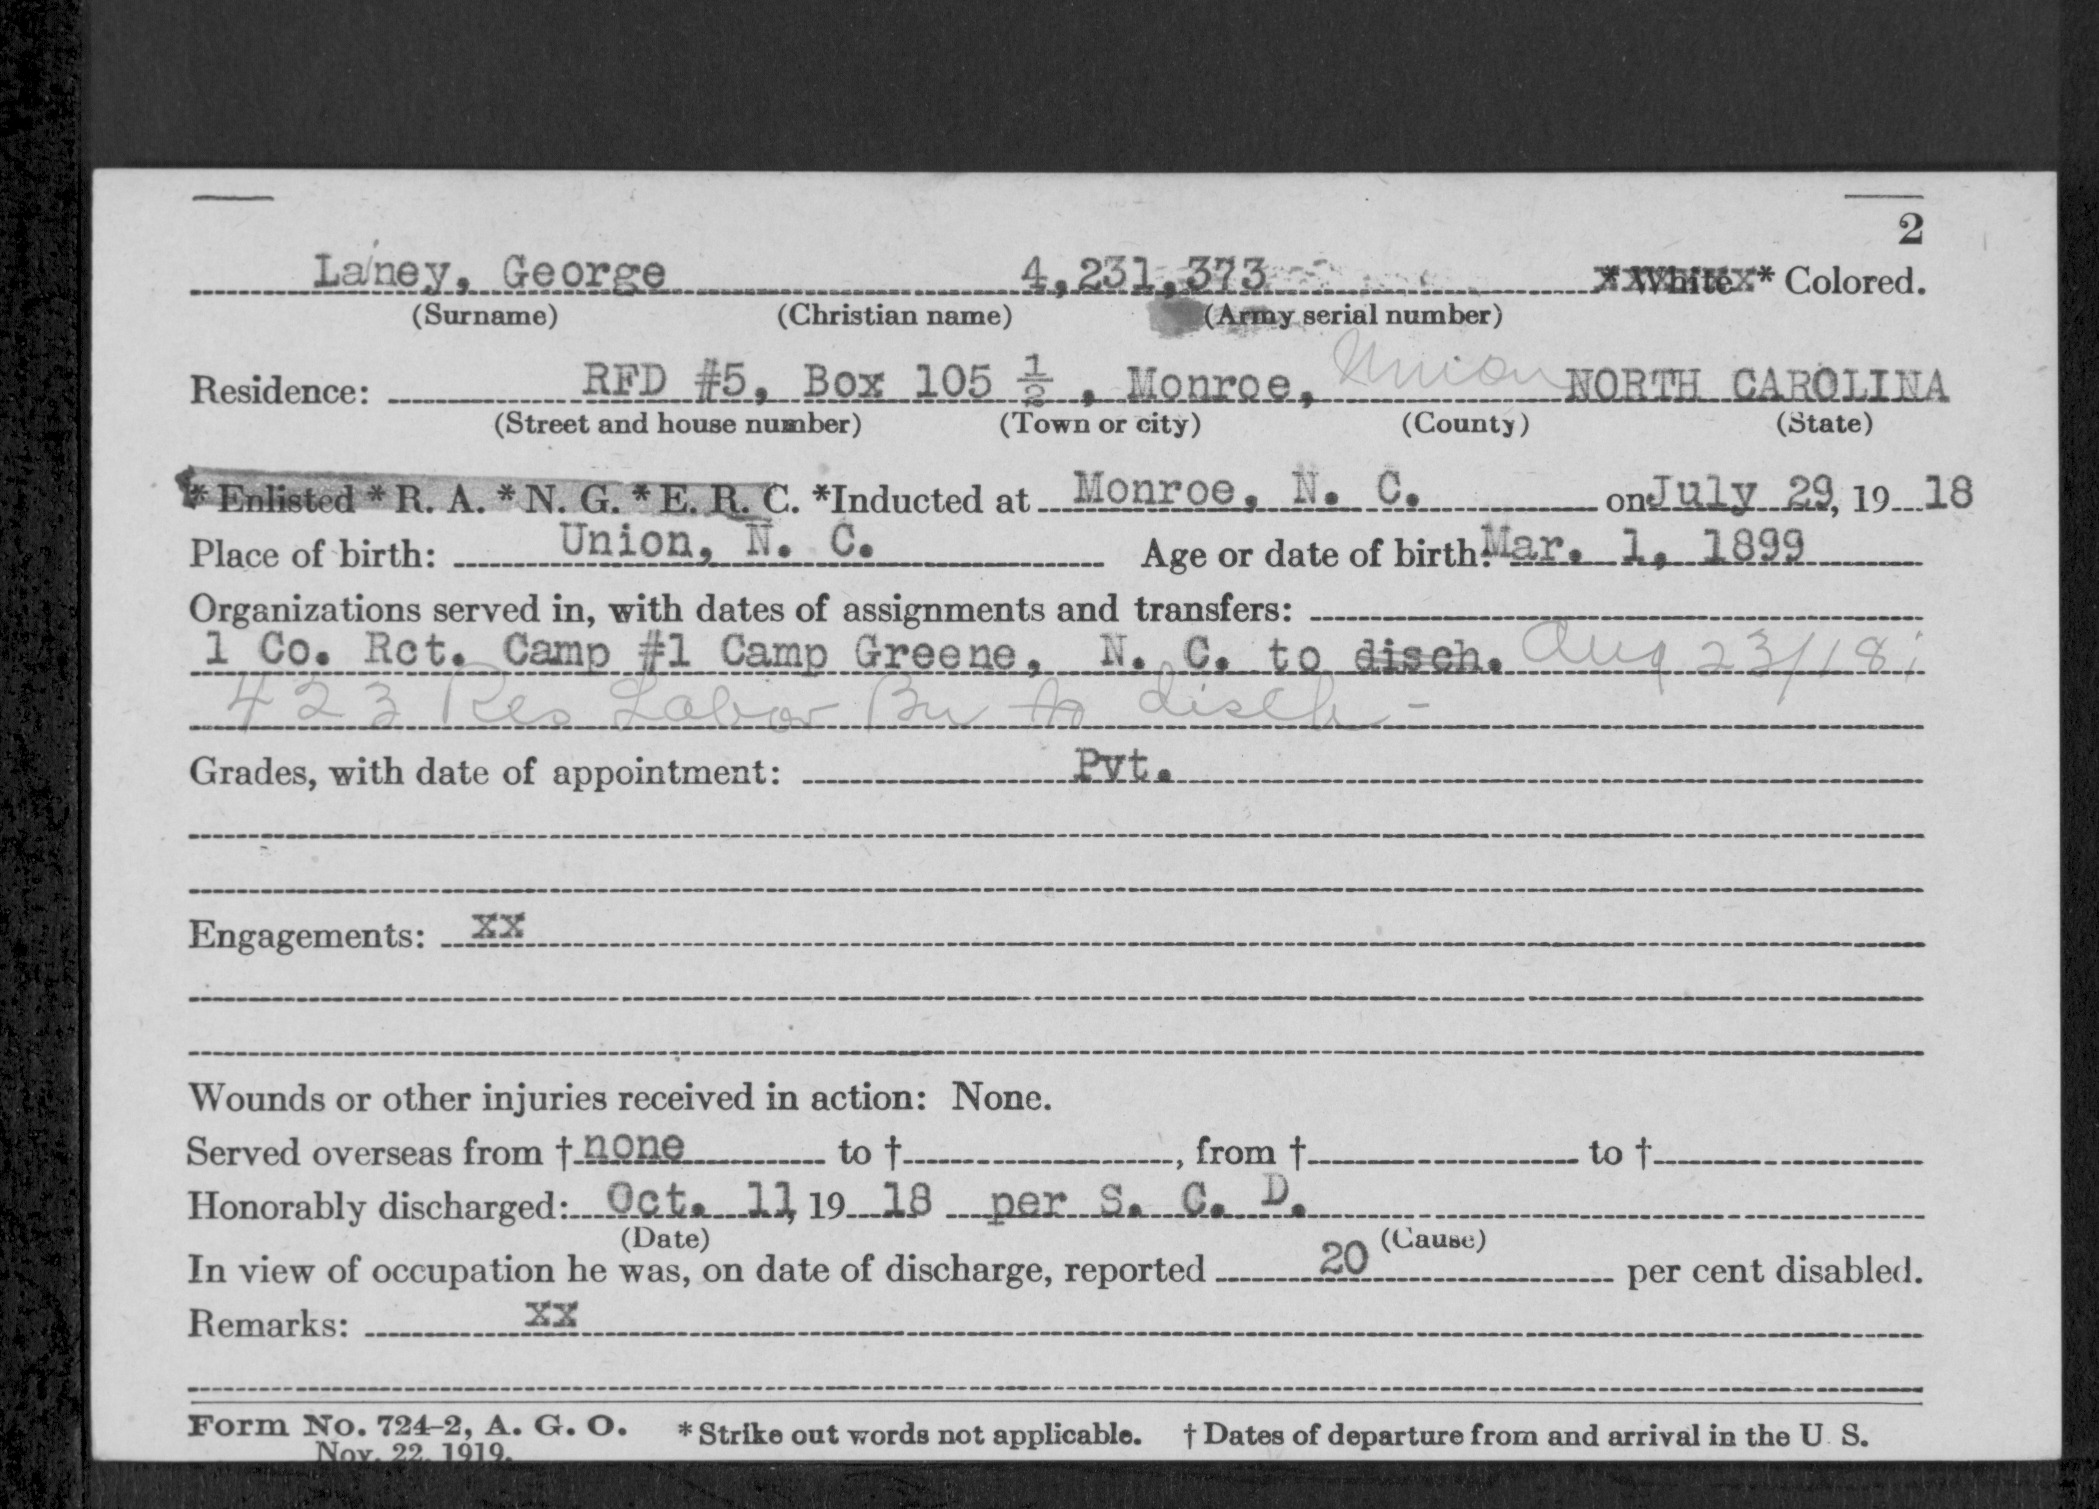 2
Laney, George 4,231,373 * White * Colored.
(Surname) (Christian name) (Army serial number)
Residence: RFD #5, Box 105 ½, Monroe, Union NORTH CAROLINA
(Street and house number) (Town or city) (County) (State)
* Enlisted * R. A. * N. G. * E. R. C. *Inducted at Monroe, N. C. on July 29, 19 18
Place of birth: Union, N. C. Age or date of birth: Mar. 1, 1899
Organizations served in, with dates of assignments and transfers:
1 Co. Rct. Camp #1 Camp Greene, N. C. to disch. Aug 23/18;
423 Res Labor Bn to disch -
Grades, with date of appointment: Pvt.
Engagements: xx
Wounds or other injuries received in action: None.
Served overseas from † none to †, from † to †
Honorably discharged: Oct. 11, 19 18 per S. C. D.
(Date) (Cause)
In view of occupation he was, on date of discharge, reported 20 per cent disabled.
Remarks: xx
Form No. 724-2, A. G. O. * Strike out words not applicable. † Dates of departure from and arrival in the U. S.
Nov. 22, 1919.